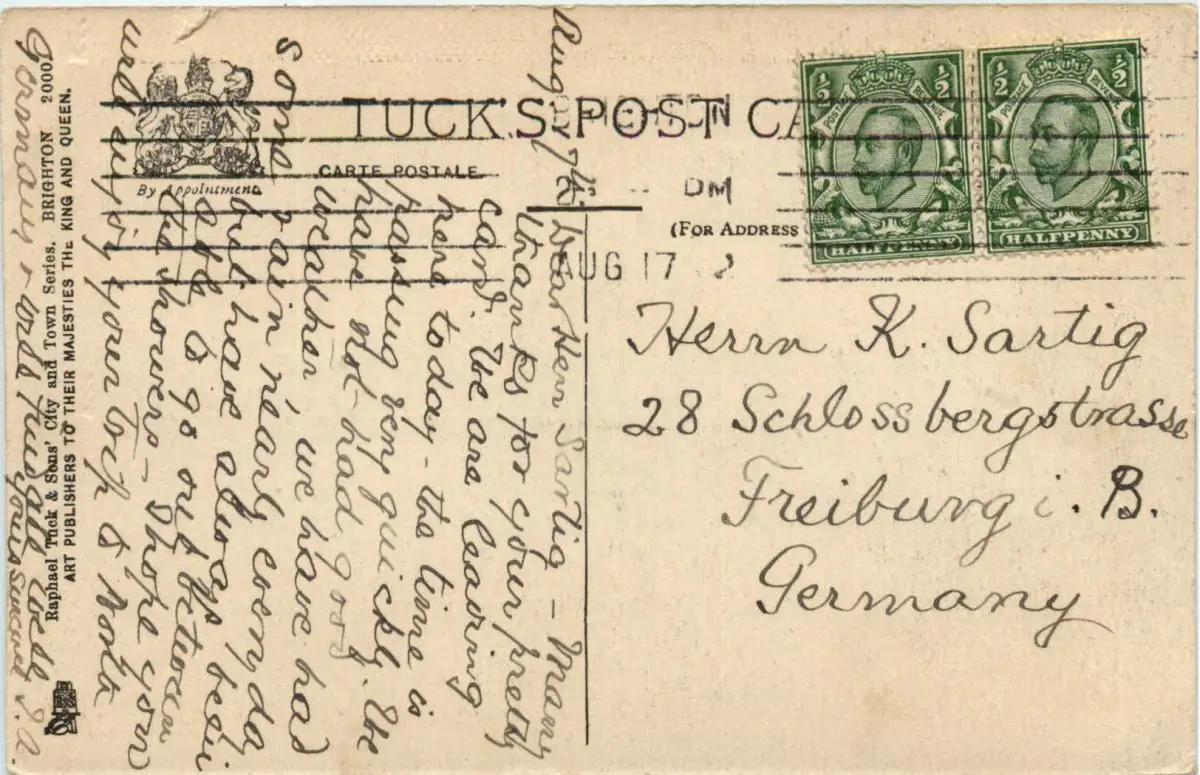 TUCK'S POST CA
CARTE POSTALE
(FOR ADDRESS
By Appointment
PM
AUG 17
1/2 1/2
POSTAGE REVENUE
HALFPENNY
1/2 1/2
POSTAGE REVENUE
HALFPENNY
Herrn K. Sartig
28 Schlossbergstrasse
Freiburg i. B.
Germany
Aug 17th
Dear Herr Sartig - Many
thanks for your pretty
card. We are leaving
here today - the time is
passing very quickly. We
have not had good
weather. we have had
some rain nearly every day
but have always been
able to go out between
the showers - I hope you
will enjoy your trip to North
Germany & will find all well
Yours sincerely
Raphael Tuck & Sons' City and Town Series. BRIGHTON 2000
ART PUBLISHERS TO THEIR MAJESTIES THE KING AND QUEEN.